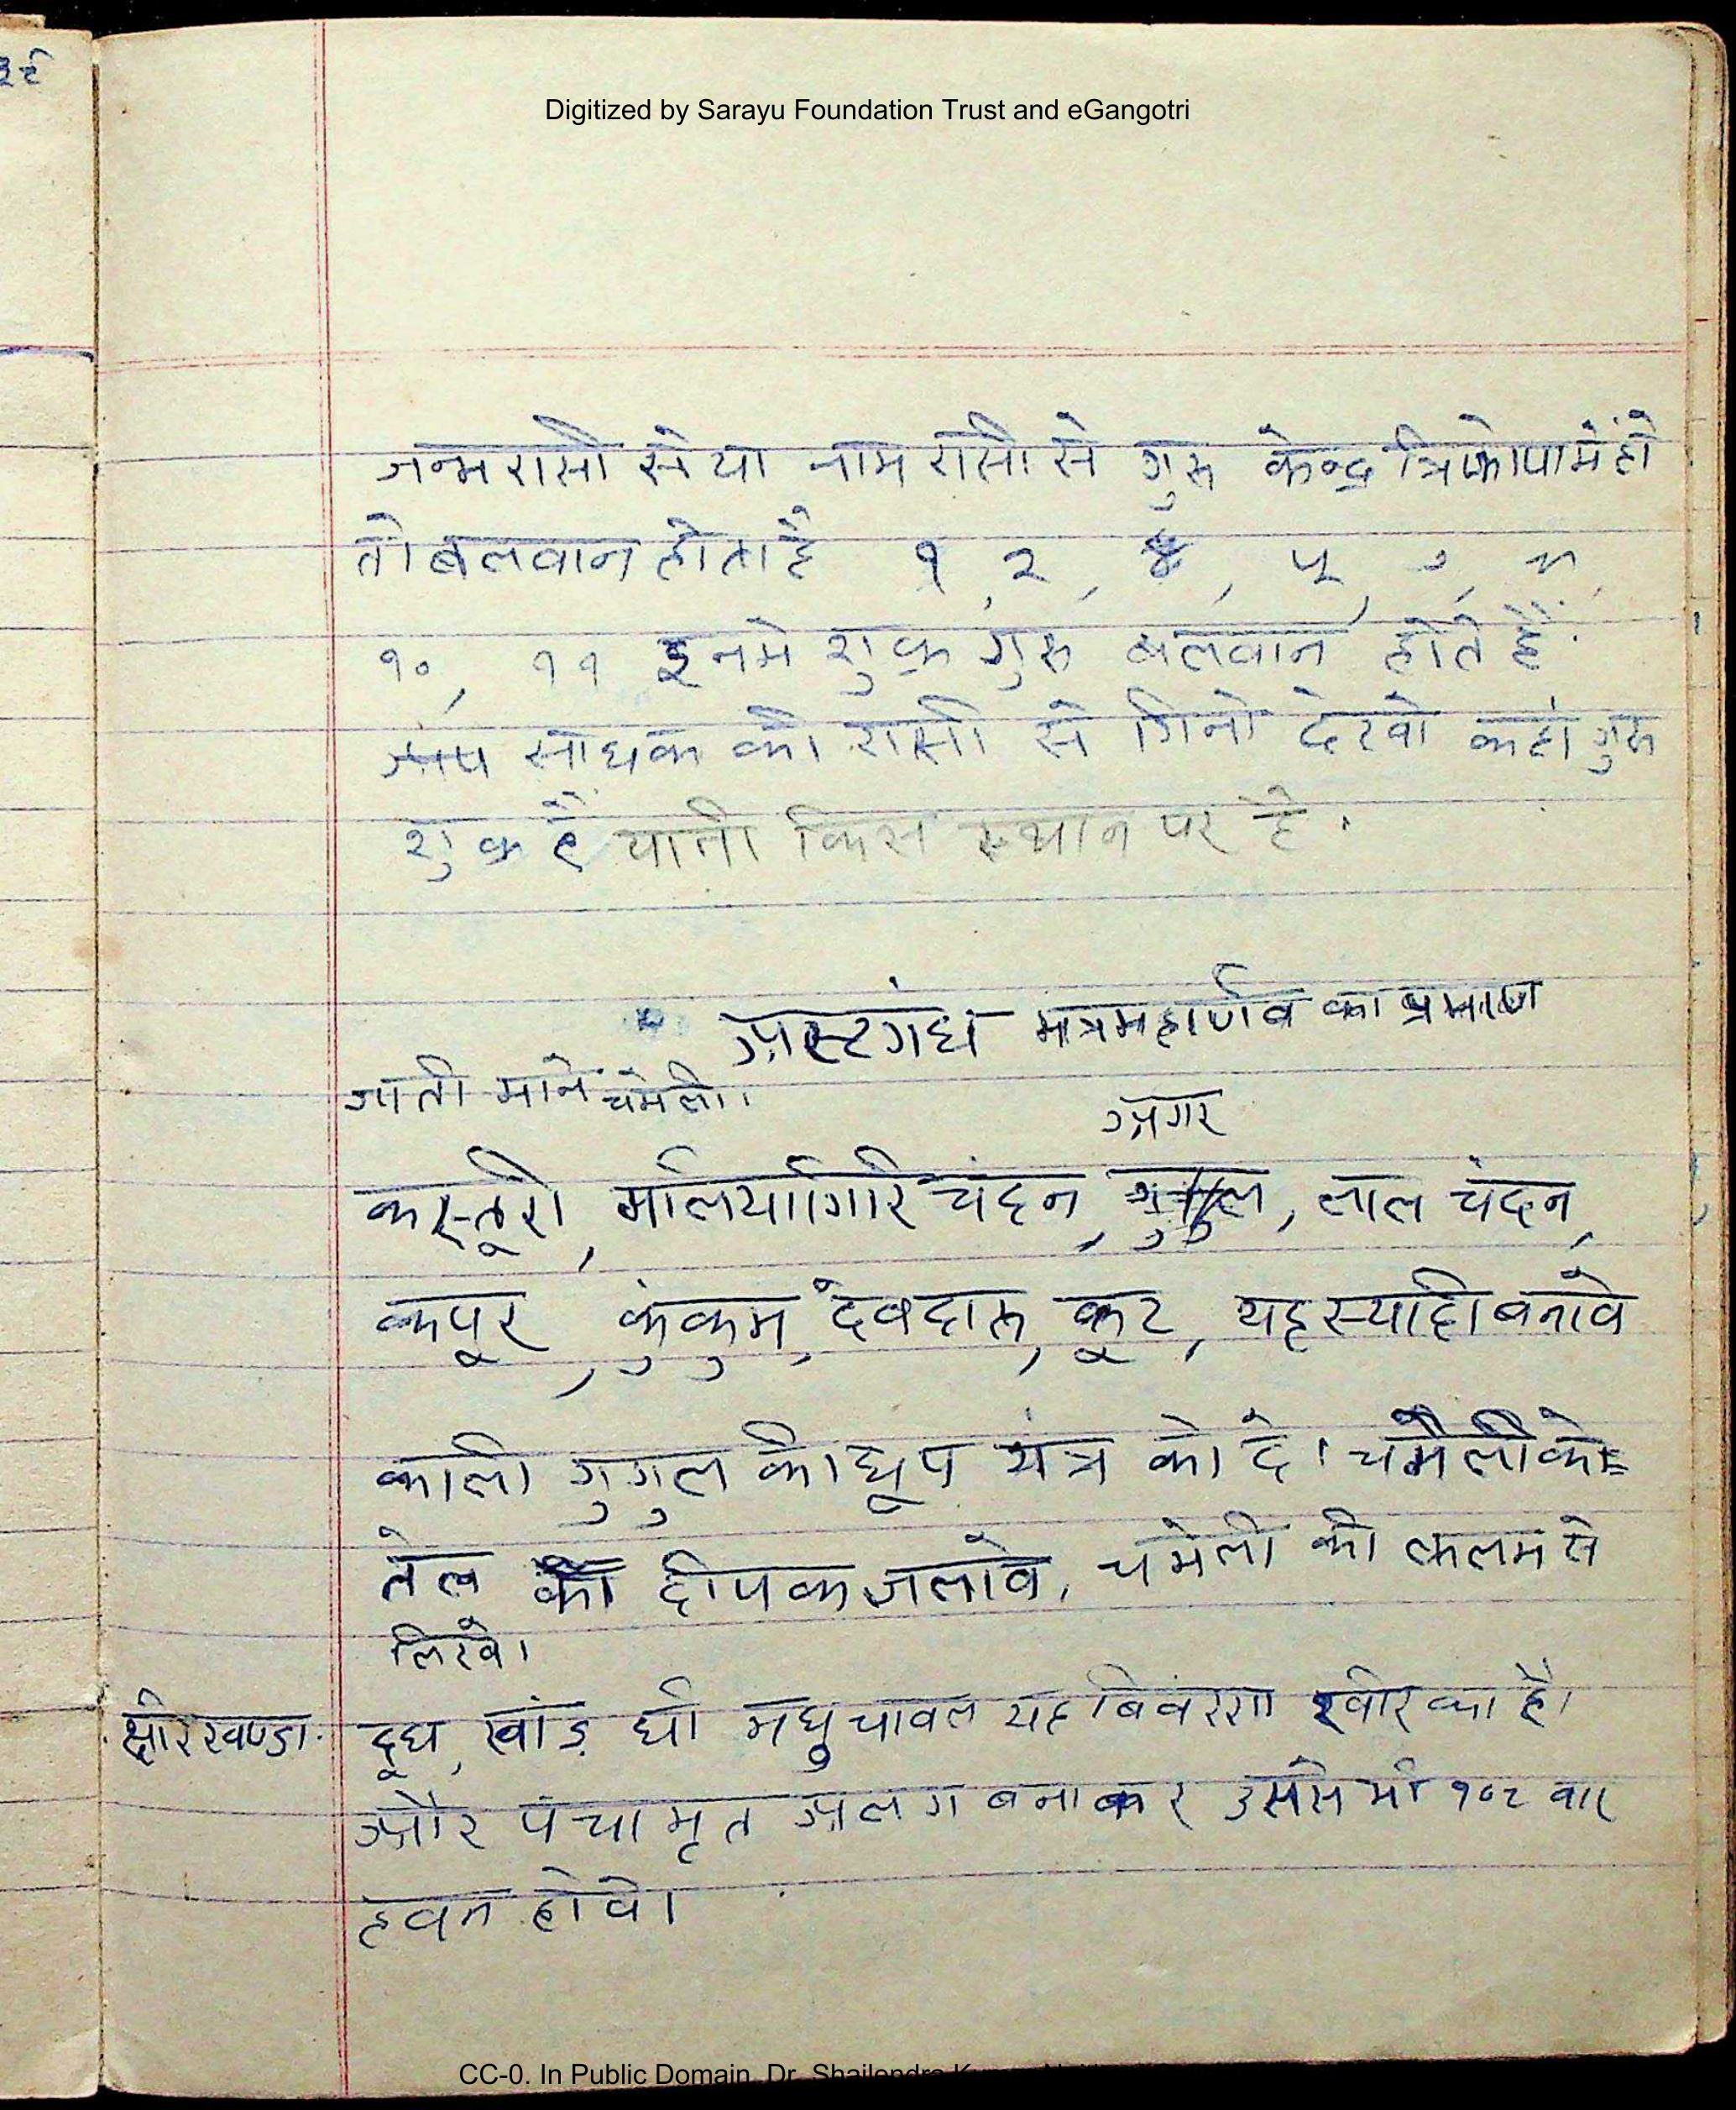 ३९
Digitized by Sarayu Foundation Trust and eGangotri
जन्म रासी से या नाम रासी से गुरू केन्द्र त्रिकोण में हो
तो बलवान होता है १, २, ४, ५,
१०, ११ इनमे शुक्र गुरू बलवान होते हैं.
साधक की रासी से गिनो देखो कहां गुरू
शुक्र है यानी किस स्थान पर है.
अस्टगंध मंत्रमहार्णव का प्रमाण
जाती माने चमेली।
अगर
कस्तूरी, मलियागिरि चंदन, लाल चंदन,
कपूर, कुंकुम, देवदारू, कूट, यह स्याही बनावे
काली गुगुल की धूप यंत्र को दे। चमेली के
तेल का दीपक जलावे, चमेली की कलम से
लिखे।
क्षीरखण्डा. दूध, खांड़ घी मधु चावल यह विवरण खीर का है।
और पंचामृत अलग बनाकर उससे भी १०८ बार
हवन होवे।
CC-0. In Public Domain. Dr. Shailendra